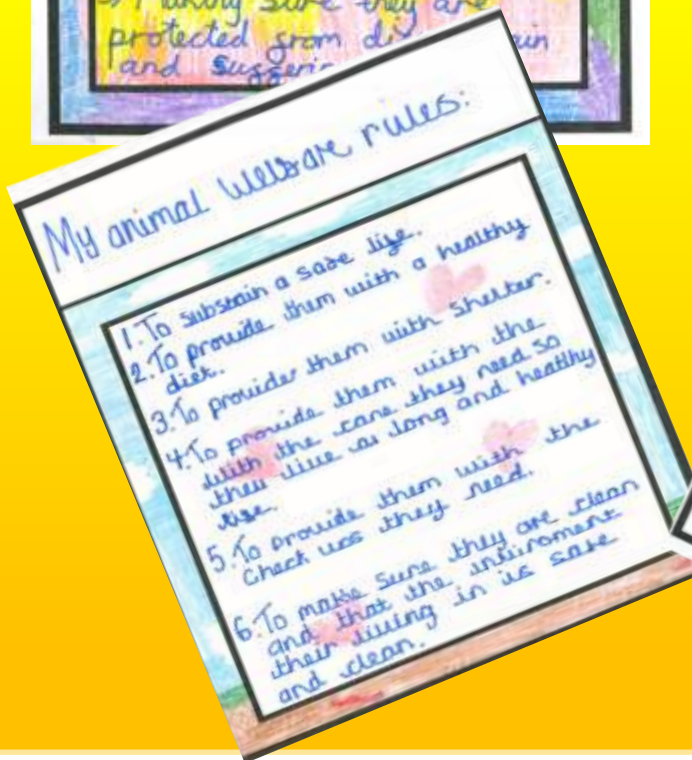 Making sure they are
protected from
and
My animal Welfare rules:
1. To substain a safe life.
2. To provide them with a healthy
diet.
3. To provide them with shelter.
4. To provide them with the
with the care they need so
they live a long and healthy
life.
5. To provide them with the
Check ups they need.
6. To make sure they are clean
and that the
their living in is safe
and clean.